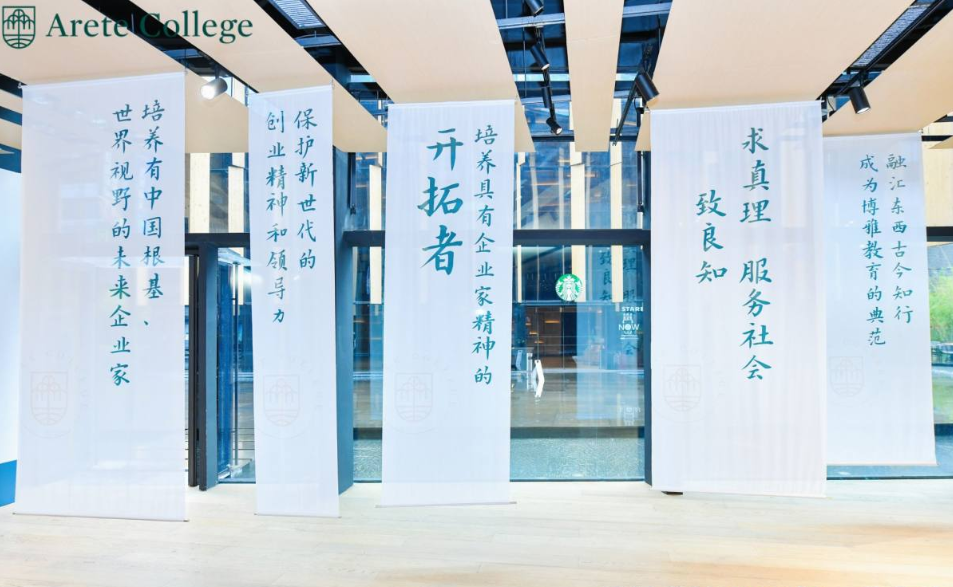 Arete College
培养有中国根基、
世界视野的未来企业家
保护新世代的
创业精神和领导力
培养具有企业家精神的
开拓者
求真理 服务社会
致良知
融汇东西古今知行
成为博雅教育的典范
NOW